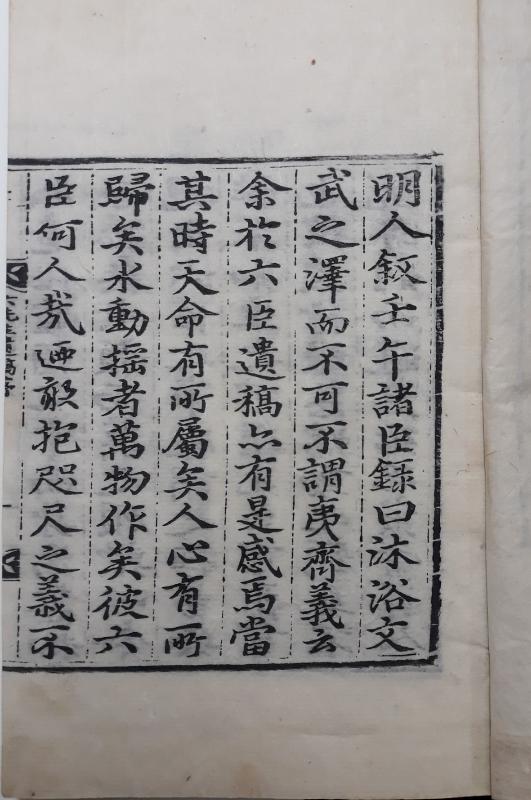 明人叙壬午諸臣錄曰沐浴文
武之澤而不可不謂夷齊義云
余於六臣遺稿亦有是感焉當
其時天命有所屬矣人心有所
歸矣水動搖者萬物作矣彼六
臣何人㢤廼敢抱咫尺之義不